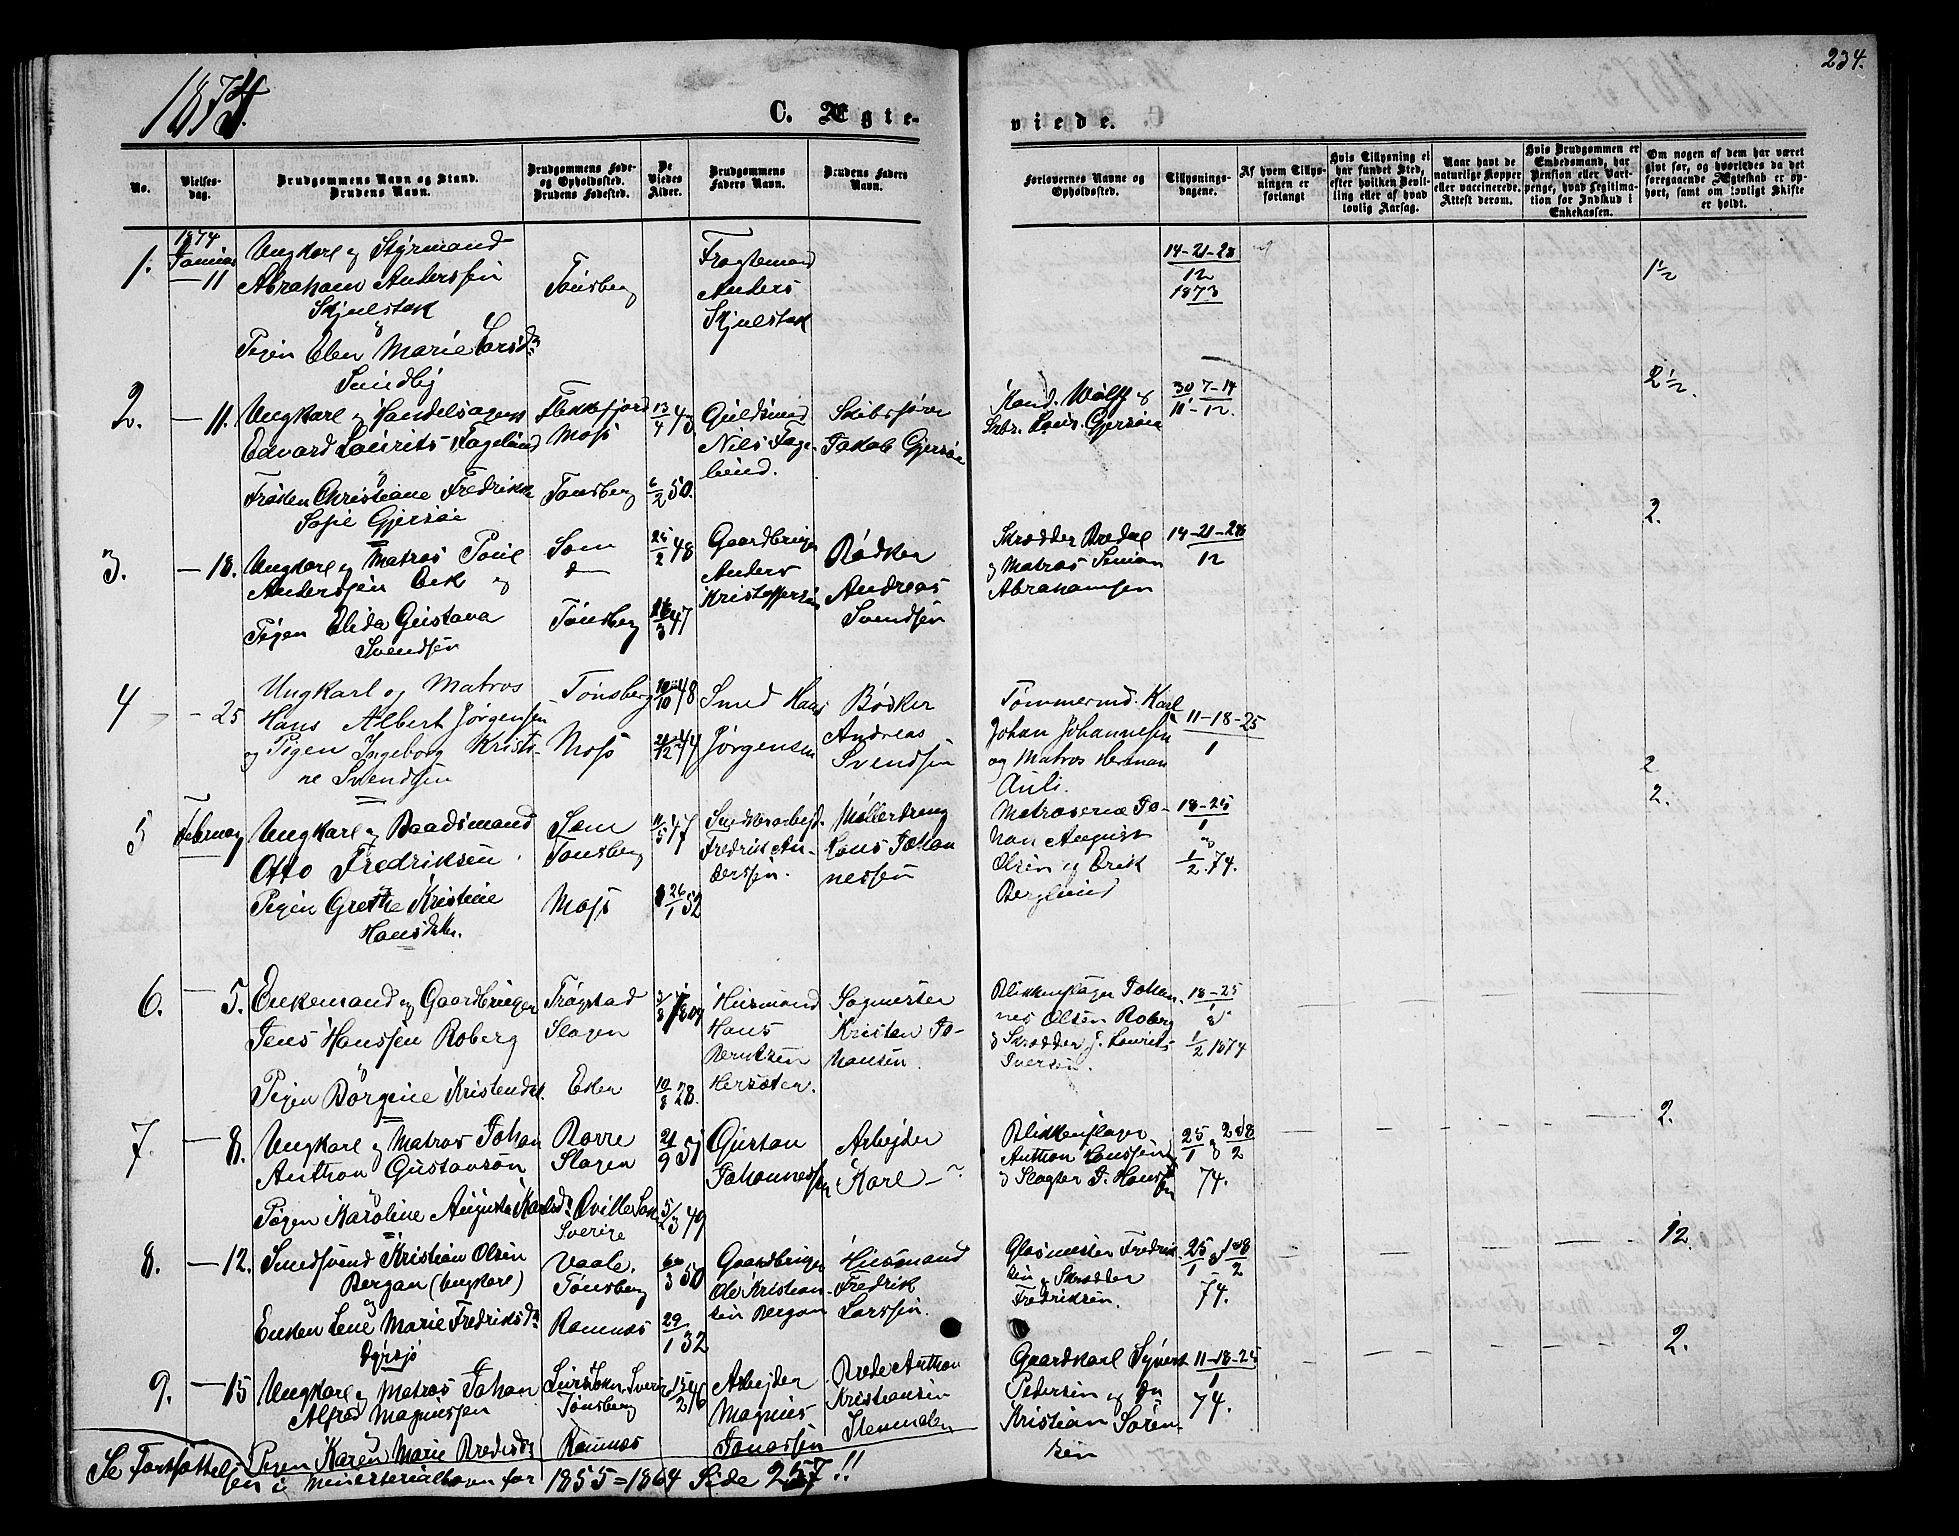 1874.
C. Ægte-
viede.
234.
No.
Vielses-
dag.
Brudgommens Navn og Stand.
Brudens Navn.
Brudgommens Føde-
og Opholdssted.
Brudens Fødested.
De
Viedes
Alder.
Brudgommens
Faders Navn.
Brudens Faders
Navn.
Forlovernes Navne og
Opholdssted.
Tillysnings-
dagene.
Af hvem Tillys-
ningen er
forlangt
Hvis Tillysning ei
har fundet Sted,
efter hvilken Bevil-
ling eller af hvad
lovlig Aarsag.
Naar havt de
naturlige Kopper
eller vaccinerede.
Attest derom.
Hvis Brudgommen er
Embedsmand, har
Pension eller Vart-
penge, hvad Legitima-
tion for Indskud i
Enkekassen.
Om nogen af dem har været
gift før, og hvorledes da det
foregaaende Ægteskab er op-
hørt, samt om lovligt Skifte
er holdt.
1. 1874 Januar — 11
Ungkarl og Styrmand
Abraham Anderssen
Skjelstak
&
Pigen Elen Marie Larsdr
Smidby
Tønsberg
Fragtemand
Anders
Skjelstak
14-21-28
12
1873
1½
2. — 11.
Ungkarl og Handelsagent
Edvard Lauritz Fageland
&
Frøken Christiane Fredrikke
Sofie Gjersøe
Flekkefjord
Moss
Tønsberg
13/4 43.
6/2 50.
Guldsmed
Nils Fage-
lund.
Skibsfører
Jakob Gjersøe
Kand. Wolff og
Skbr. Gjersøe
30 7-14
11-12.
2½.
3. — 18.
Ungkarl og Matros Poul
Anderssen Eek og
Pigen Elida Gustava
Svendsen
Sem
Tønsberg
25/2 48
26/3 47
Gaardbruger
Anders
Kristoffersen
Bødker
Andreas
Svendsen
Skrædder Bredal
og Matros Simon
Abrahamsen
14-21-28
12
2.
4 — 25
Ungkarl og Matros
Hans Albert Jørgensen
og Pigen Ingeborg Kristi-
ne Svendsen
Tønsberg
Moss
10/10 48
21/12 44
Smed Hans
Jørgensen
Bødker
Andreas
Svendsen
Tømmermd. Karl
Johan Johannesen
og Matros Herman
Auli.
11-18-25
1
2
5 Februar
Ungkarl og Baadsmand
Otto Fredriksen
Pigen Grethe Kristine
Hansdatter.
Sem
Tønsberg
Moss
11/5 47
26/1 52
Fredrik An-
derssen.
Møllerdreng
Hans Johan
nessen
Matroserne Jo-
han August
Olsen og Erik
Berglund
18-25
1
og
1/2.74.
2.
6. — 5.
Enkemand og Gaardbruger
Jens Hanssen Roberg
&
Pigen Børgine Kristensd.
Trøgstad
Slagen
Eker
1809
10/8 28.
Husmand
Hans
Berntsen
Hersæter.
Sagmester
Kristen Jo-
hansen.
Blikkenslager Johan-
nes Olsen Roberg
& Skrædder J. Laurits
Iversen.
18-25
1
&
1/2 1874
7. — 8.
Ungkarl og Matros Johan
Anthon Gustavsøn
&
Pigen Karoline Augusta Karlsdr
Borre
Slagen
Qville Sokn
Sverige
21/9 51
5/3 49
Gustav
Johannessen
Arbejder
Karl — ?
Blikkenslager
Anthon Hanssen
& Slagter J. Hans
sen
25/1 & 2&8/2
74.
2.
8. — 12.
Smedsvend Kristian Olsen
Bergan (Ungkarl)
og
Enken Lene Marie Fredriksdr
Gjersjø
Vaale.
Tønsberg
Ramnæs
3 50
29/1 32
Gaardbruger
Ole Kristian-
sen Bergan
Husmand
Fredrik
Larssen.
Glasmester Fredrik-
sen og Skrædder
Fredriksen.
25/1 & 1&8/2
74.
12.
9. — 15
Ungkarl og Matros Johan
Alfred Magnussen
&
Pigen Karen Marie Bredesdr
Sverige
Tønsberg
Ramnæs
15/2 46
Arbejder
Magnus
Jonassen
Brede Anthon
Kristiansen
Stenmalen
Gaardkarl Syvert
Pedersen og do
Kristian Sören-
sen
11-18-25
1
74.
2.
Se Fortsættel-
sen i Ministerialbogen for 1855=1864 Side 257!!